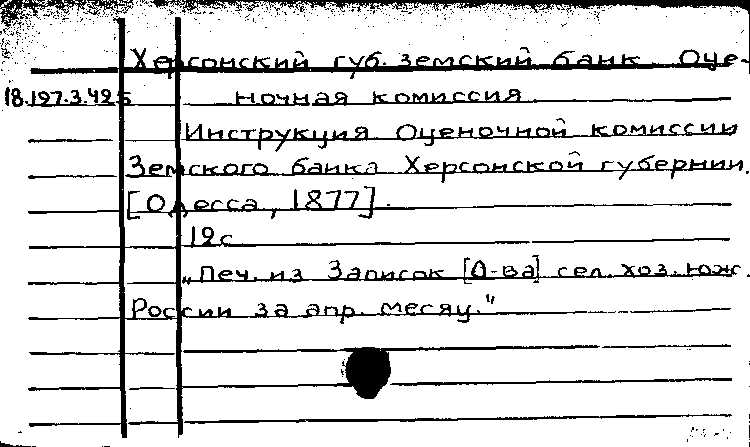 Херсонский губ. земский банк. Оце-
18.127.3.425 ночная комиссия
Инструкция Оценочной комиссии
Земского банка Херсонской губернии.
[Одесса, 1877].
12с
„Печ. из Записок [О-ва] сел. хоз. юж.
России за апр. месяц."